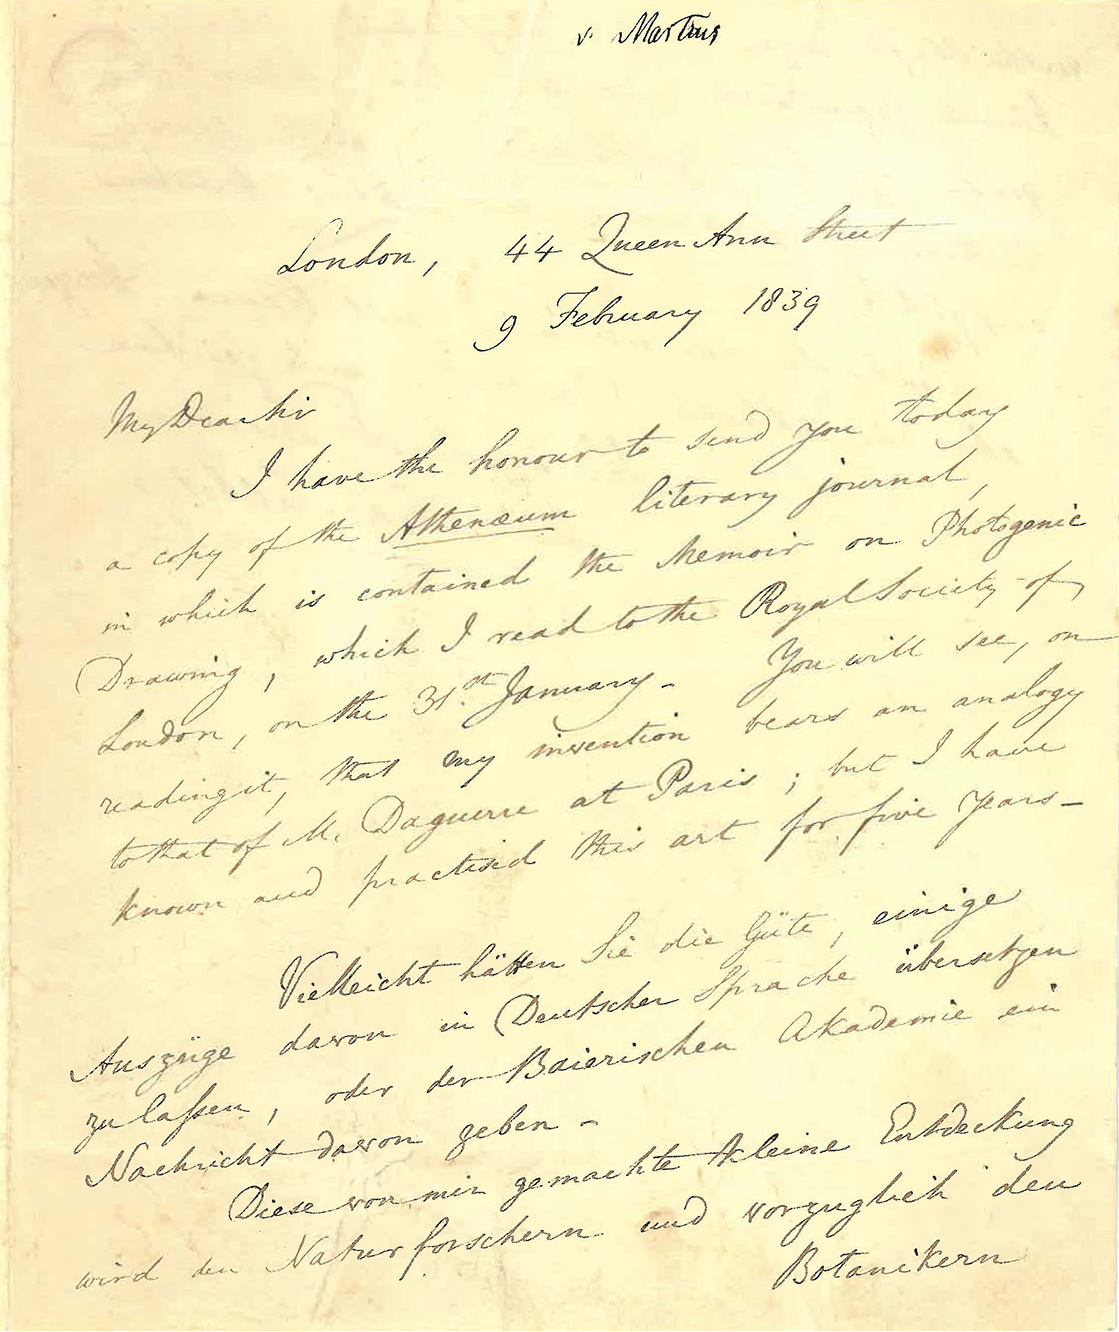 v. Martius
London, 44 Queen Ann Street
9 February 1839
My Dear Sir
I have the honour to send you today
a copy of the Athenæum literary journal,
in which is contained the Memoir on Photogenic
Drawing, which I read to the Royal Society of
London, on the 31st. January – You will see, on
reading it, that my invention bears an analogy
to that of M. Daguerre at Paris; but I have
known and practised this art for five years –
Vielleicht hätten Sie die Güte, einige
Auszüge davon in Deutscher Sprache übersetzen
zu laſsen, oder der Baierischen Akademie ein
Nachricht davon geben –
Diese von mir gemachte kleine Entdeckung
wird den Naturforschern und vorzuglich den
Botanikern